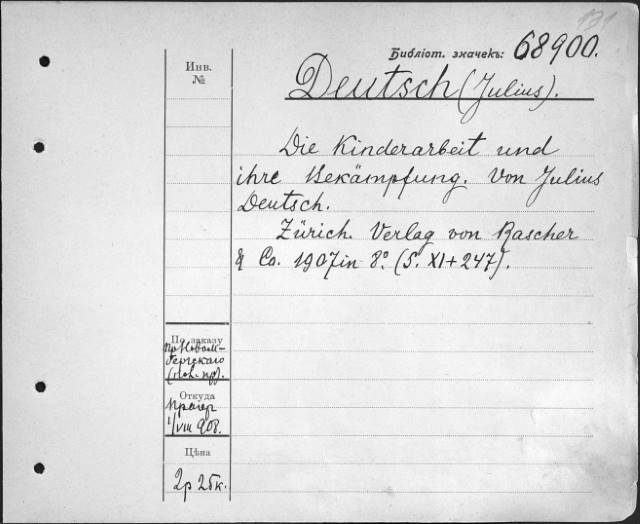 131
Библіот. значекъ: 68900.
Инв.
№
Deutsch (Julius).
Die Kinderarbeit und
ihre Bekämpfung. Von Julius
Deutsch.
Zürich. Verlag von Rascher
& Co. 1907 in 8º. (S. XI+247).
По заказу
пр.
Откуда
Прагер
1/VIII 908.
Цѣна
2р 25к.